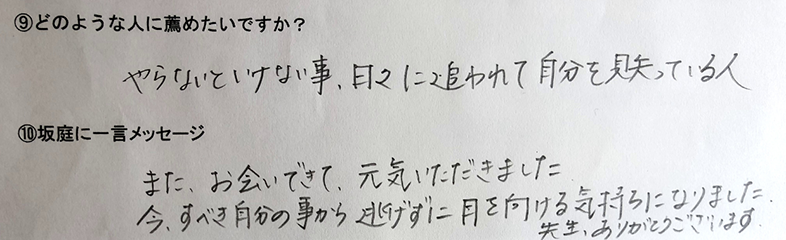 ⑨どのような人に薦めたいですか？
やらないといけない事、日々に追われて自分を見失っている人
⑩坂庭に一言メッセージ
また、お会いできて、元気いただきました
今、すべき自分の事から逃げずに目を向ける気持ちになりました。
先生、ありがとうございます。